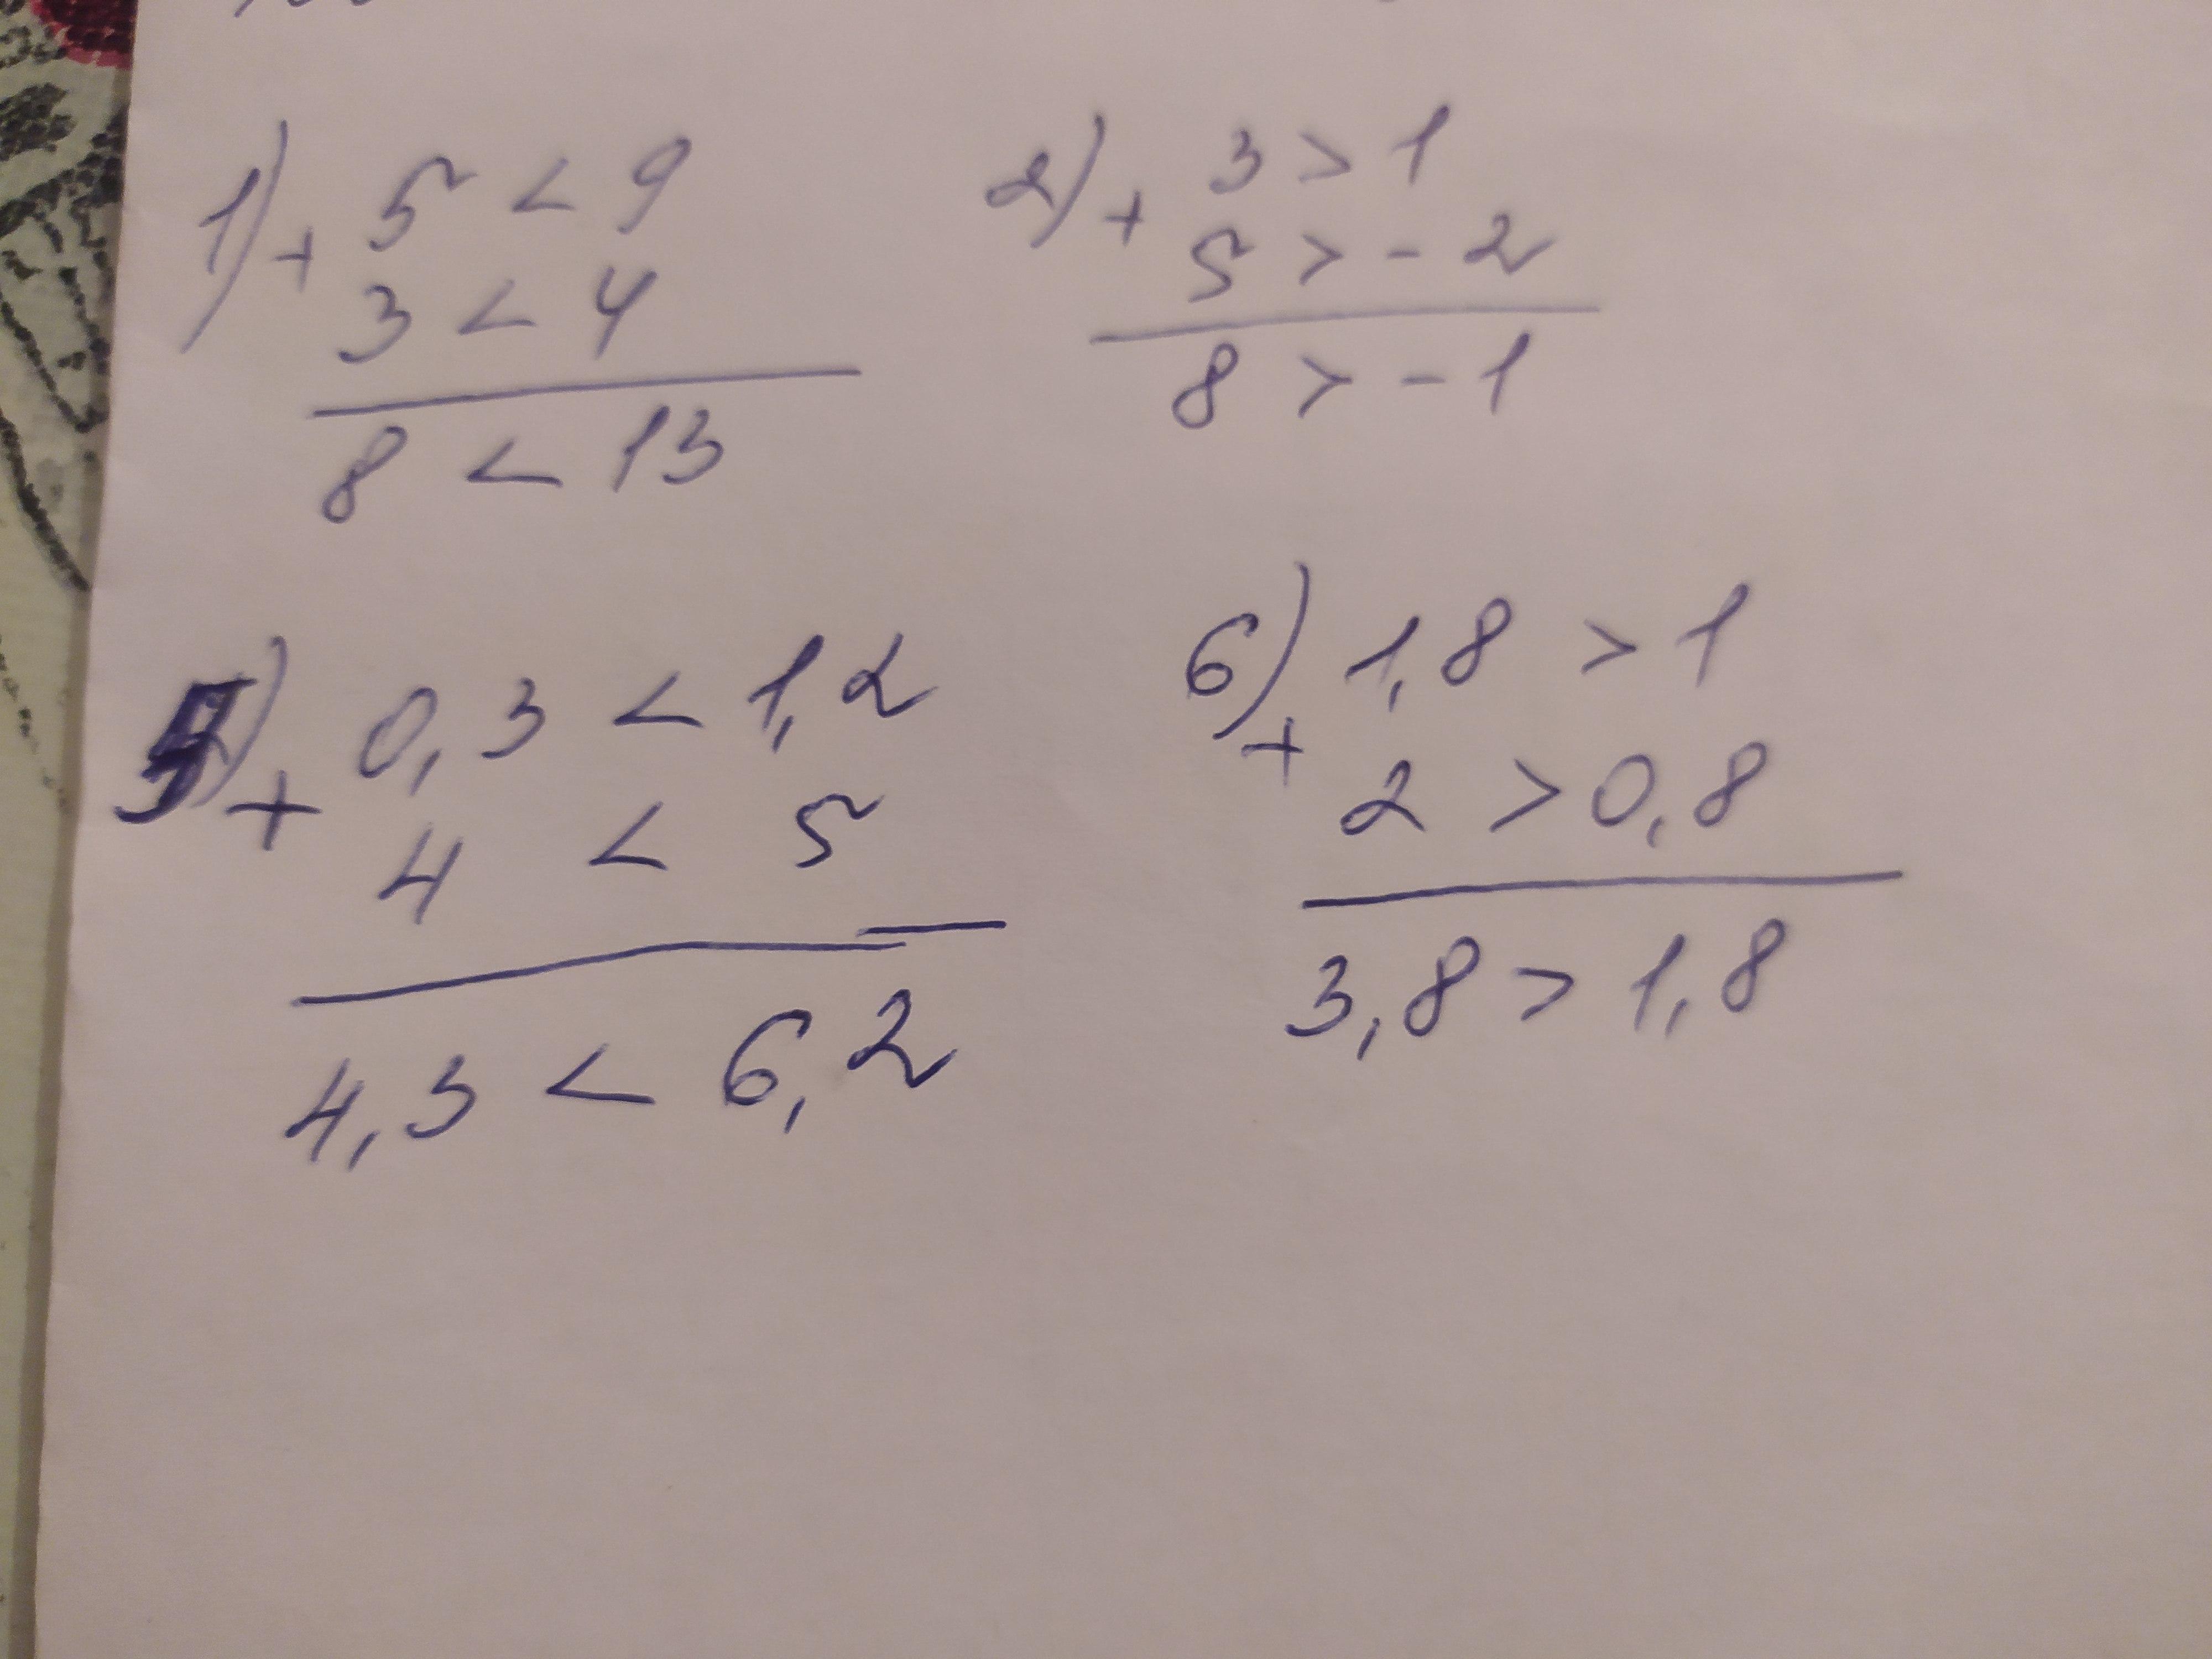 1) + 5 < 9
3 < 4
8 < 13
2) + 3 > 1
5 > - 2
8 > - 1
5) + 0,3 < 1,2
4 < 5
4,3 < 6,2
6) + 1,8 > 1
2 > 0,8
3,8 > 1,8